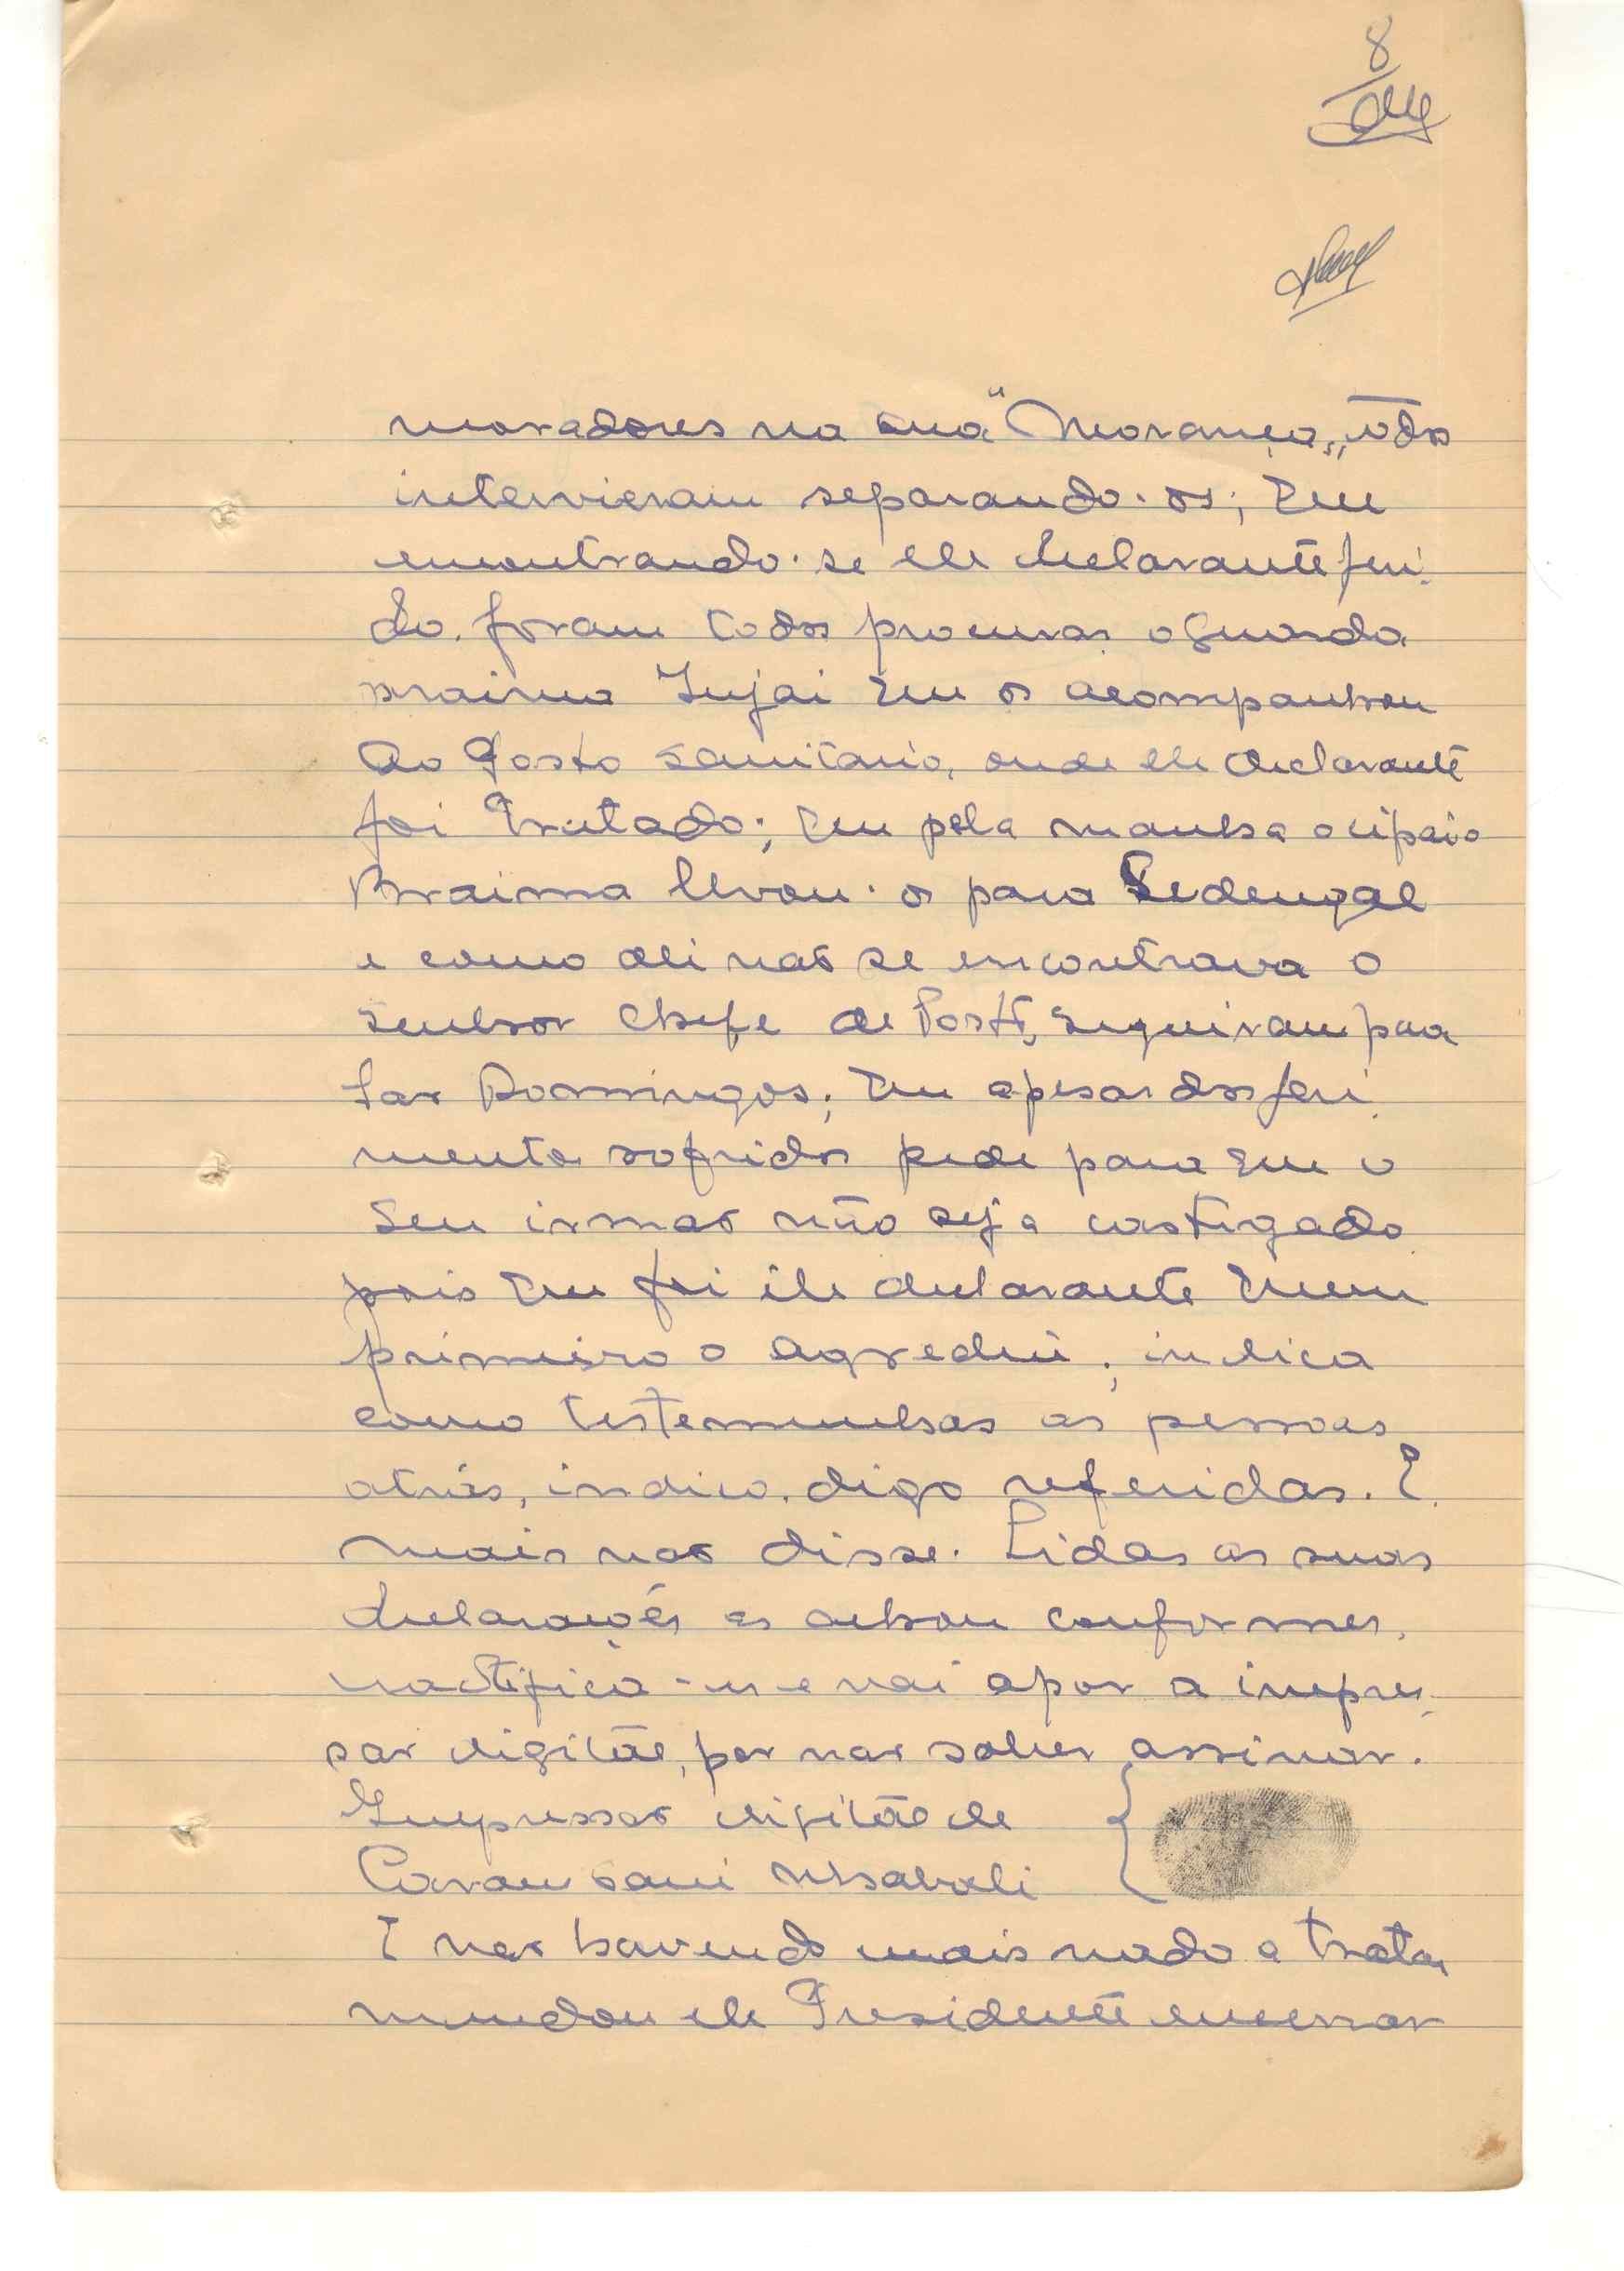 8
moradores na sua "Morança„, todos
intervieram separando-os; que
encontrando-se ele declarante feri-
do, foram todos procurar o guarda
Braima Injai que os acompanhou
ao Posto Sanitario, onde ele declarante
foi tratado; que pela manha o cipaio
Braima levou-os para Sedengal
e como ali não se encontrava o
senhor Chefe de Posto, seguiram para
São Domingos; que apesar dos feri-
mentos sofridos pede para que o
seu irmão não seja castigado
pois que foi ele declarante quem
primeiro o agrediu; indica
como testemunhas as pessoas
atrás, indico, digo referidas. E
mais não disse. Lidas as suas
declarações as achou conformes,
ractifica-as e vai apor a impres-
são digital, por não saber assinar.
Impressão digital de
Caramsani Nhabali
E não havendo mais nada a tratar
mandou ele Presidente encerrar